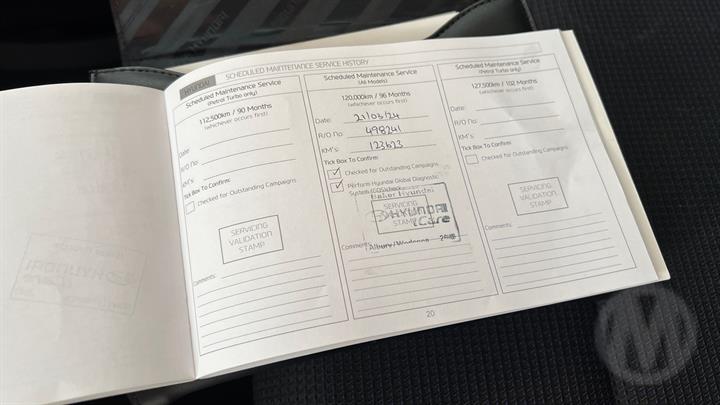 HYUNDAI SCHEDULED MAINTENANCE SERVICE HISTORY
Scheduled Maintenance Service
(Petrol Turbo only)
112,500km / 90 Months
(whichever occurs first)
Date:
R/O No:
KM's:
Tick Box To Confirm:
Checked for Outstanding Campaigns
SERVICING
VALIDATION
STAMP
Comments:
Scheduled Maintenance Service
(All Models)
120,000km / 96 Months
(whichever occurs first)
Date: 21/03/24
R/O No: 498241
KM's: 123623
Tick Box To Confirm:
Checked for Outstanding Campaigns
Perform Hyundai Global Diagnostic
System (GDS) check
Baker Hyundai
HYUNDAI
iCare
STAMP
Comments:
Albury/Wodonga
20
Scheduled Maintenance Service
(Petrol Turbo only)
127,500km / 102 Months
(whichever occurs first)
Date:
R/O No:
KM's:
Tick Box To Confirm:
Checked for Outstanding Campaigns
SERVICING
VALIDATION
STAMP
Comments: